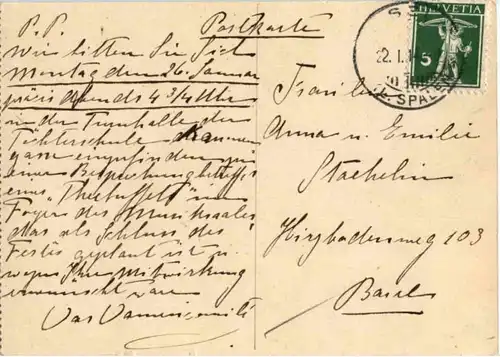 P. P. Postkarte
Wir bitten Sie sich
Montag den 26. Januar
präcis abends 4 3/4 Uhr
in der Turnhalle der
Töchterschule
gasse einfinden zu
einer Besprechung betreffs
eines "Theebuffets" im
Foyer des Musiksaales
das als Schluss des
Festes geplant ist u.
wozu Ihre Mitwirkung
erwünscht wäre
Das Damencomité
HELVETIA
5
22. I.
SPAL
Fräulein
Anna u. Emilie
Staehelin
Hirzbodenweg 103
Basel